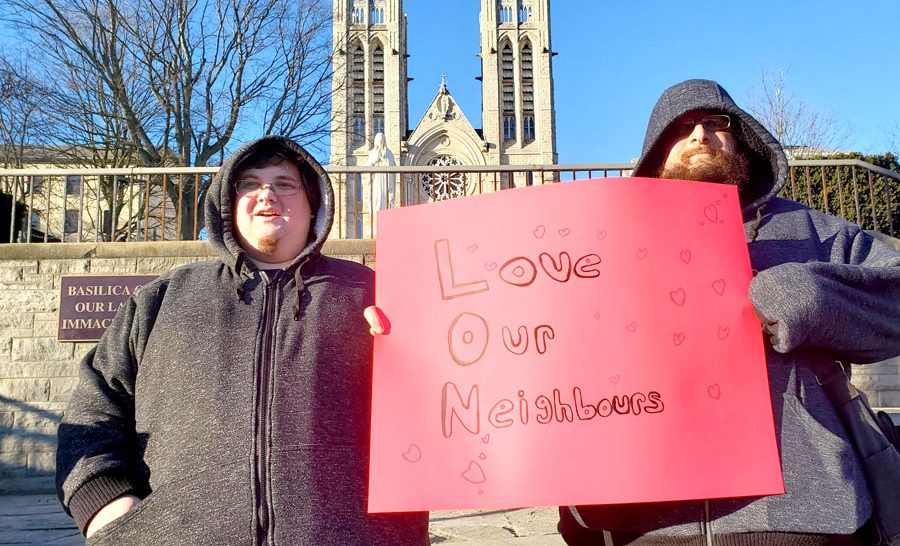 BASILICA
OUR
IMMAC
Love
Our
Neighbours